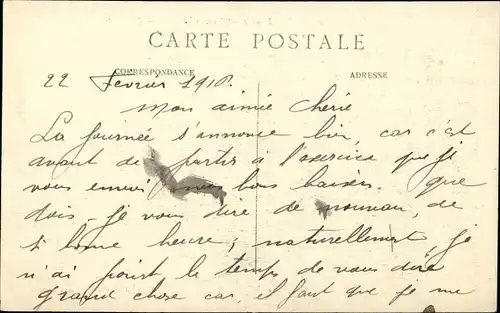 CARTE POSTALE
CORRESPONDANCE
ADRESSE
22 Fevrier 1918.
Mon aimée Chérie
La journée s'annonce bien, car c'est
avant de partir à l'exercice que je
vous envoi mes bons baisers. Que
dois-je vous dire de nouveau, de
si bonne heure; naturellement, je
n'ai point le temps de vous dire
grand chose car, il faut que je me